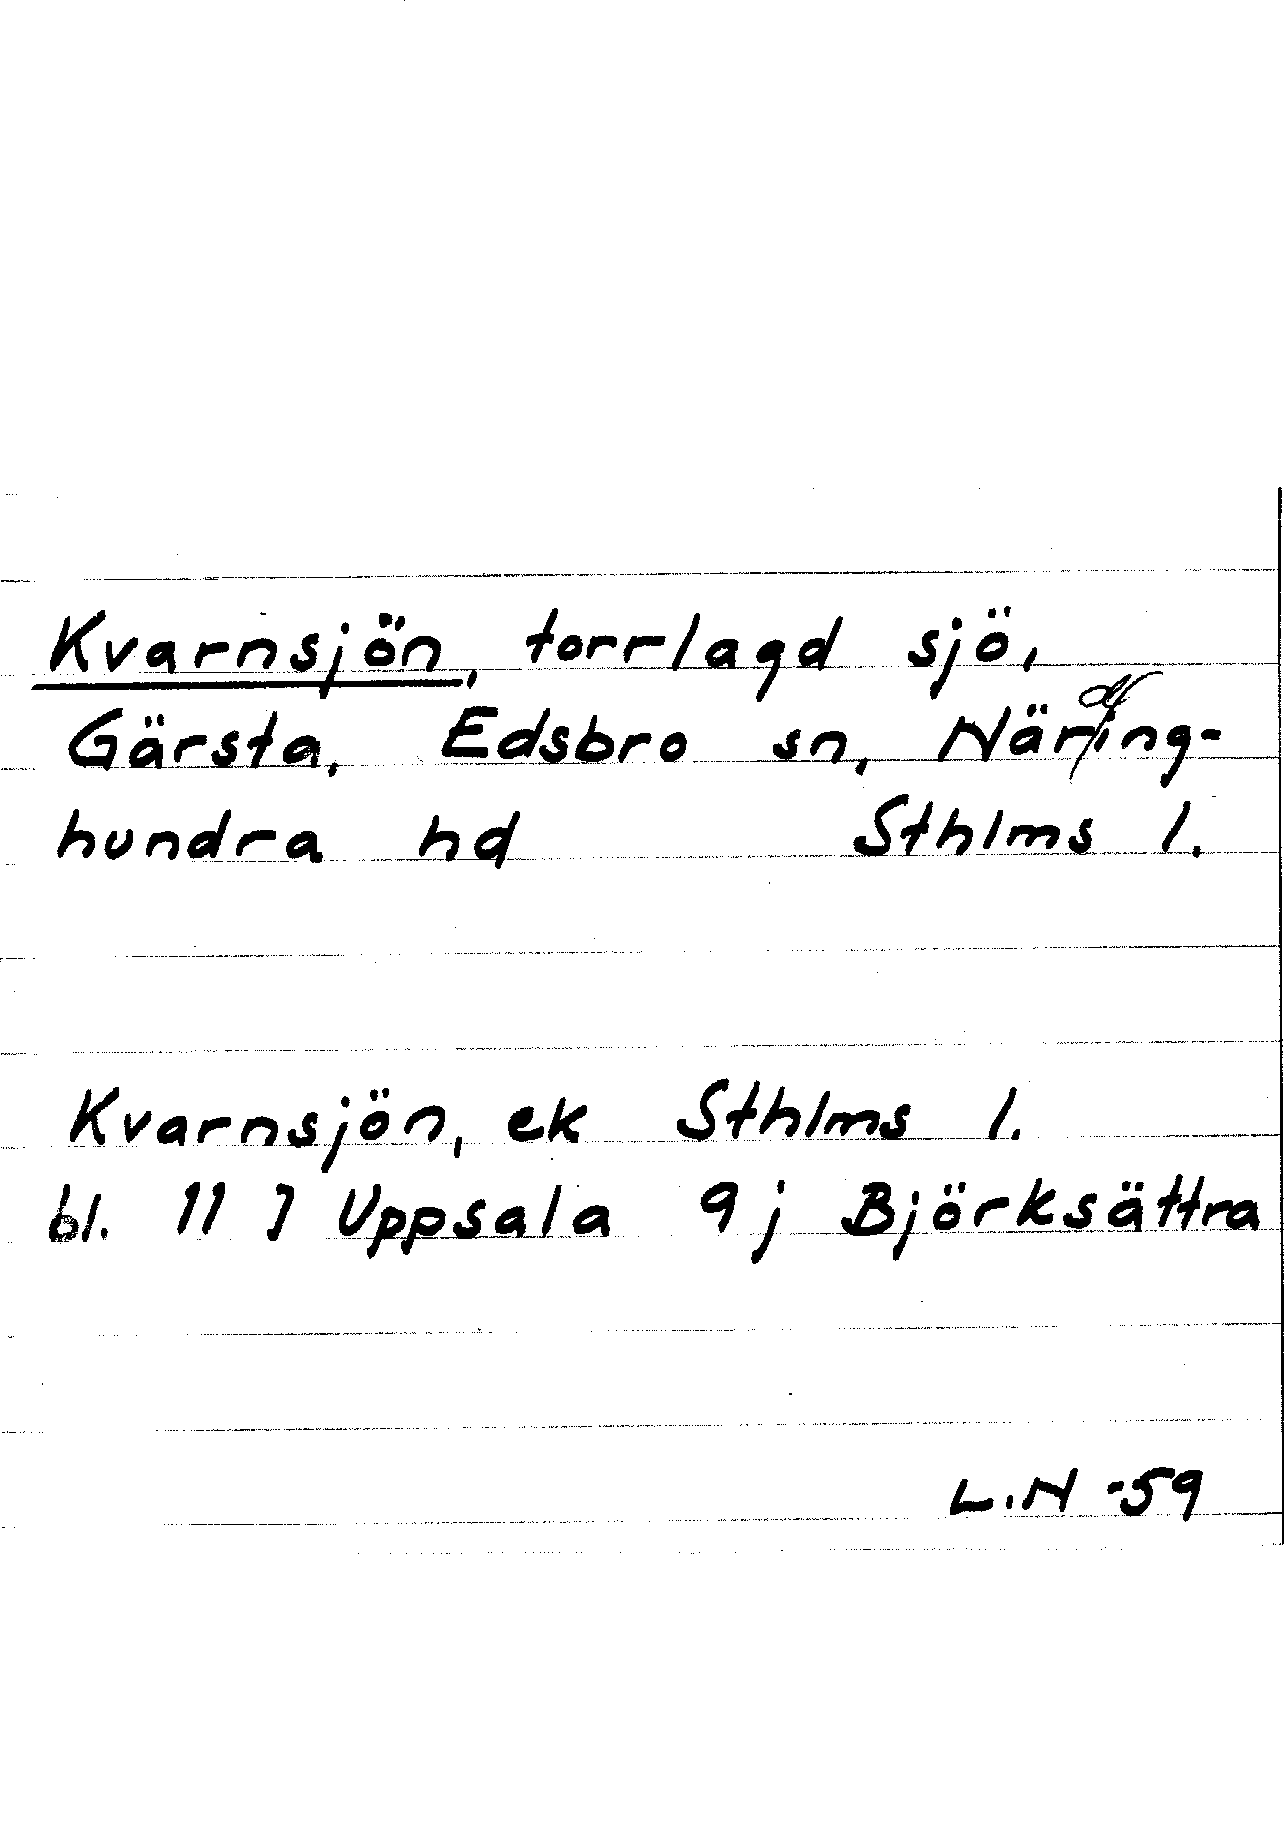 Kvarnsjön, torrlagd sjö,
Gärsta, Edsbro sn, Näring-
hundra hd Sthlms l.
Kvarnsjön, ek Sthlms l.
bl. 11 J Uppsala 9 j Björksättra
L.N -59